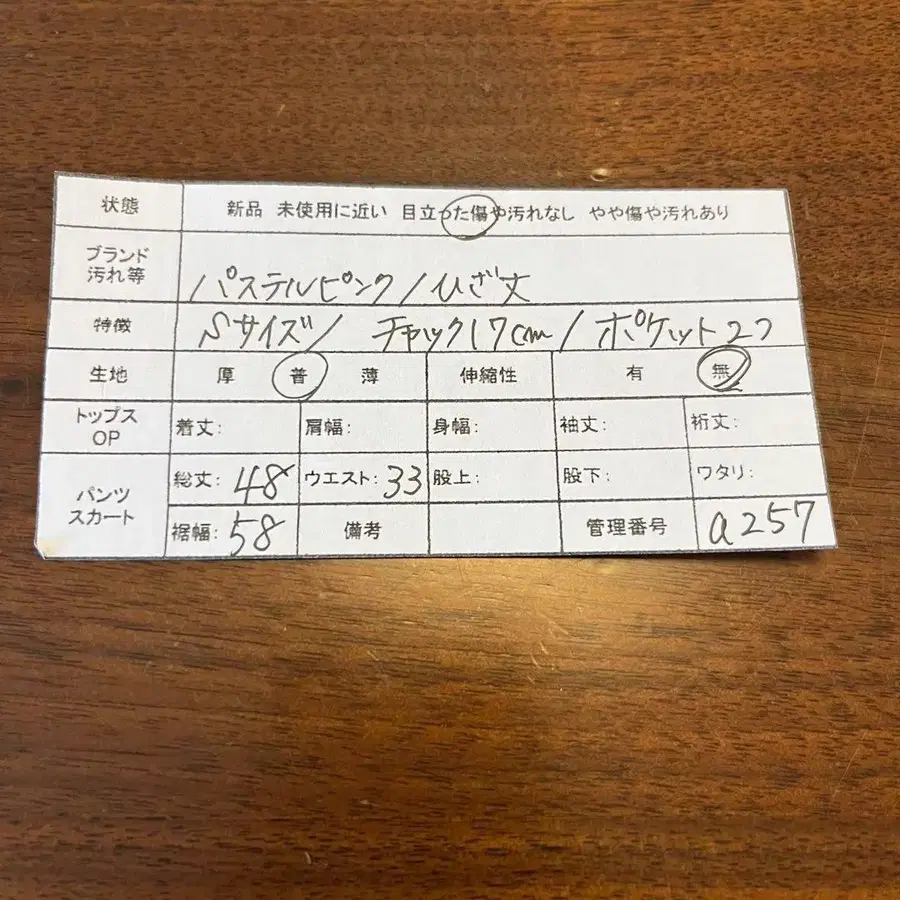 状態 新品 未使用に近い 目立った傷や汚れなし やや傷や汚れあり
ブランド
汚れ等 パステルピンク/ひざ丈
特徴 Sサイズ/ チャック17cm/ポケット2つ
生地 厚 普 薄 伸縮性 有 無
トップス
OP 着丈: 肩幅: 身幅: 袖丈: 裄丈:
パンツ
スカート 総丈: 48 ウエスト: 33 股上: 股下: ワタリ:
裾幅: 58 備考 管理番号 a257